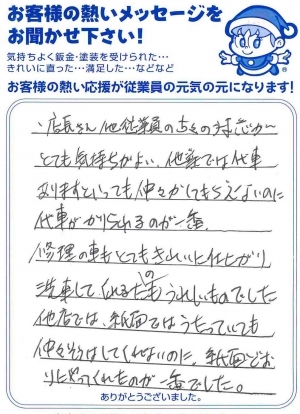 お客様の熱いメッセージを
お聞かせ下さい!
気持ちよく鈑金・塗装を受けられた…
きれいに直った…満足した…などなど
お客様の熱い応援が従業員の元気の元になります!
店長さん他従業員の方々の対応が
とても気持ちがよい、他社では代車
ありますといっても中々かしてもらえないのに
代車がかりられるのが一番、
修理の車もとてもきれいに仕上がり
洗車してくれるのもうれしいものでした
他店では、紙面ではうたっていても
中々そうはしてくれないのに、紙面どお
りにやってくれたのが一番でした。
ありがとうございました。